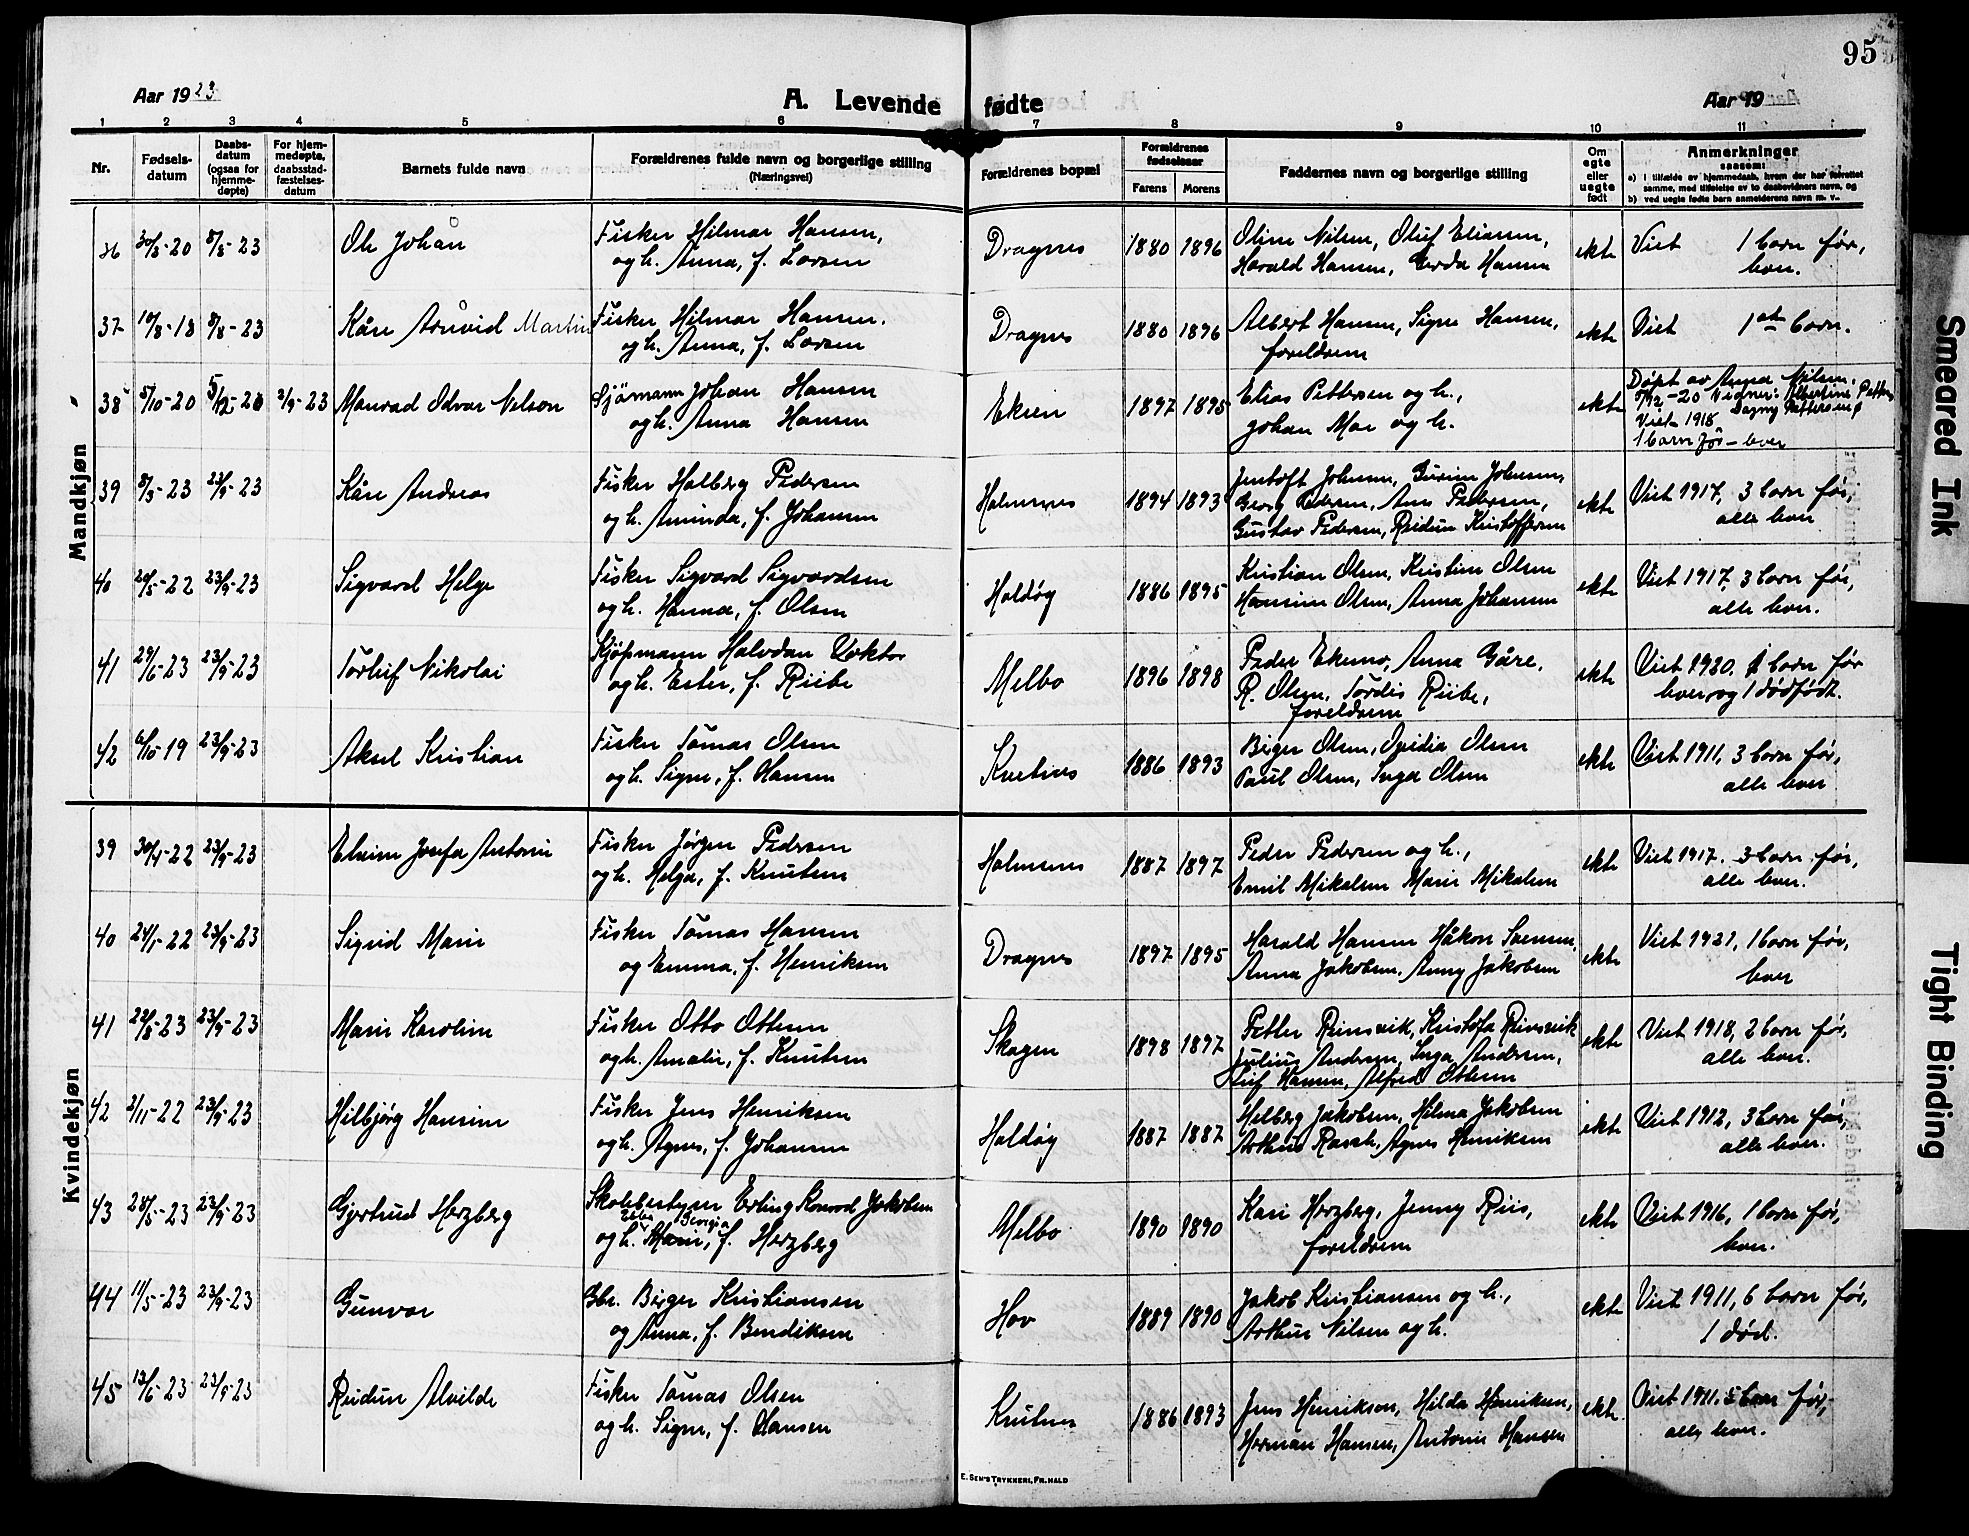 95
Aar 1923
A. Levende fødte
Aar 19
1 2 3 4 5 6 7 8 9 10 11
Nr.
Fødsels-
datum
Daabs-
datum
(ogsaa for
hjemme-
døpte)
For hjem-
medøpte,
daabsstad-
fæstelses-
datum
Barnets fulde navn
Forældrenes fulde navn og borgerlige stilling
(Næringsvei)
Forældrenes bopæl
Forældrenes
fødselsaar
Farens Morens
Faddernes navn og borgerlige stilling
Om
egte
eller
uegte
født
Anmerkninger
saasom:
a) i tilfælde av hjemmedaab, hvem der har forrettet
samme, med tilføielse av to daabsvidners navn, og
b) ved uegte fødte barn anmelderens navn m. v..
Mandkjøn
36 30/3-20 8/8-23 Ole Johan Fisker Hilmar Hansen, Dragnes 1880 1896 Oline Nilsen, Oluf Eliassen, ekte Viet 1 barn før,
og h. Anna, f. Larsen Harald Hansen, Gerda Hansen lever.
37 10/8-13 8/8-23 Kåre Arnvid Martin Fisker Hilmar Hansen. Dragnes 1880 1896 Albert Hansen, Signe Hansen, ekte Viet 1ste barn.
og h. Anna, f. Larsen foreldrene
38 5/10-20 5/12-20 2/9-23 Monrad Odvar Nelson Sjömann Johan Hansen Ekren 1897 1895 Elias Pettersen og h., ekte Döpt av Anna Nilsen.
og h. Anna Hansen Johan Moe og h. 5/12-20 Vidner: Albertine Petters
Dagny Pettersen
Viet 1918
1 barn før - lever
39 8/3-23 23/9-23 Kåre Andreas Fisker Halberg Pedersen Holmsnes 1894 1893 Jentoft Johnsen, Gurine Johnsen, ekte Viet 1917, 3 barn før,
og h. Aminda, f. Johansen Georg Pedersen, Ane Pedersen, alle lever
Gustav Pedersen, Reidun Kristoffersen
40 20/5-22 23/9-23 Sigvard Helge Fisker Sigvard Sigvardsen Holdøy 1886 1895 Kristian Olsen, Kristine Olsen ekte Viet 1917, 3 barn før,
og h. Hanna, f. Olsen Hansine Olsen, Anna Johansen alle lever.
41 29/6-23 23/9-23 Torleif Nikolai Kjøpmann Halvdan Voktor Melbo 1896 1898 Peder Ekemo, Anna Gåre, ekte Viet 1920. 1 barn før
og h. Ester, f. Riibe R. Olsen, Tordis Riibe, lever og 1 dödfödt.
foreldrene
42 6/10-19 23/9-23 Aksel Kristian Fisker Tomas Olsen 1886 1893 Birger Olsen, Ovidia Olsen ekte Viet 1911, 3 barn før,
og h. Signe, f. Hansen Paul Olsen, Inga Olsen alle lever
Kvindekjøn
39 30/4-22 23/9-23 Elvine Josefa Antonie Fisker Jørgen Pedersen Holmsnes 1887 1897 Peder Pedersen og h., ekte Viet 1917. 3 barn før,
og h. Helga, f. Knutsen Emil Mikalsen Marie Mikalsen alle lever.
40 24/1-22 23/9-23 Sigrid Marie Fisker Tomas Hansen Dragnes 1897 1895 Harald Hansen Håkon Svensen, ekte Viet 1921, 1 barn før,
og Emma, f. Henriksen Anna Jakobsen, Anny Jakobsen lever
41 22/8-23 23/9-23 Marie Karoline Fisker Otto Ottesen Skagen 1898 1897 Petter Reinsvik, Kristofa Reinsvik ekte Viet 1918, 2 barn før,
og h. Amalie, f. Knutsen Julius Andersen, Inga Andersen, alle lever.
Leif Hansen, Alfred Ottesen
42 2/11-22 23/9-23 Hilbjörg Hansine Fisker Jens Henriksen Holdøy 1887 1887 Helberg Jakobsen, Hilma Jakobsen ekte Viet 1912, 3 barn før,
og h. Agnes, f. Johansen Arthur Rasch, Agnes Henriksen alle lever.
43 28/5-23 23/9-23 Gjertrud Herzberg Skolebestyrer Erling Konrad Jakobsen Melbo 1890 1890 Kari Herzberg, Jenny Riis, ekte Viet 1916, 1 barn før,
Ebba Georgia
og h. Marie, f. Herzberg foreldrene lever.
44 11/5-23 23/9-23 Gunvor Gbr. Birger Kristiansen Hov 1889 1890 Jakob Kristiansen og h., ekte Viet 1911, 6 barn før,
og Anna, f. Bendiksen Arthur Nilsen og h. 1 död.
45 13/6-23 23/9-23 Reidun Alvilde Fisker Tomas Olsen 1886 1893 Jens Henriksen, Hilda Henriksen, ekte Viet 1911. 5 barn før,
og h. Signe, f. Hansen Herman Hansen, Antonie Hansen alle lever.
E. SEM'S TRYKKERI, FR.HALD
Smeared Ink
Tight Binding